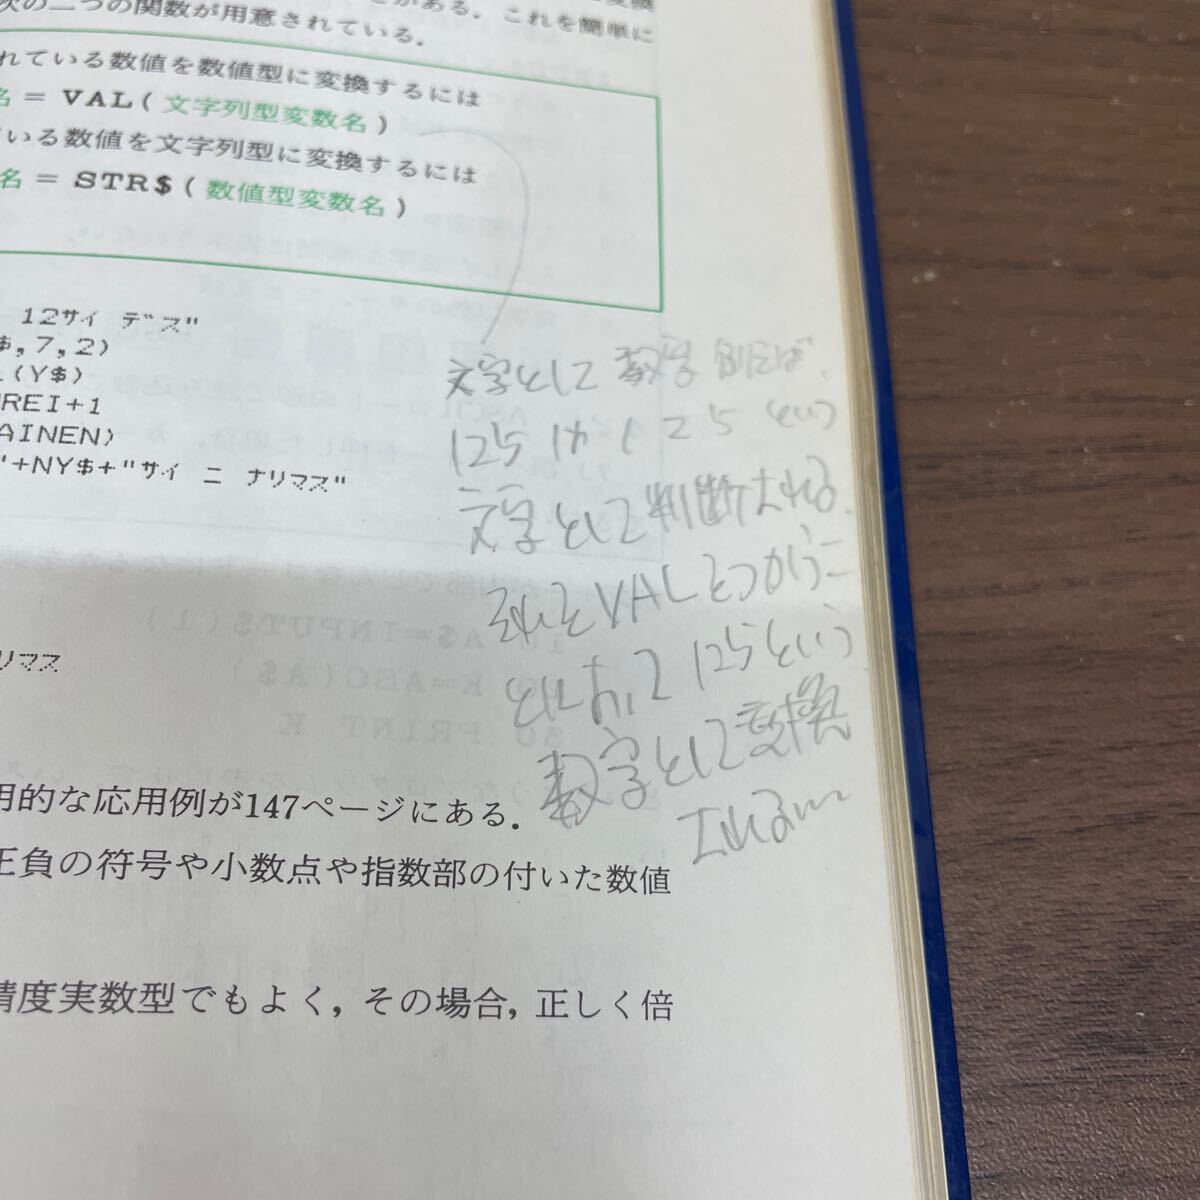 次の二つの関数が用意されている．
がある．これを簡単に
れている数値を数値型に変換するには
名 = VAL( 文字列型変数名 )
いる数値を文字列型に変換するには
名 = STR$( 数値型変数名 )
12サイ デス"
$,7,2)
(Y$)
REI+1
AINEN)
"+NY$+"サイ ニ ナリマス"
リマス
文字として数字 例えば、
125 は 1 2 5 という
文字として判断される.
それをVALをつかうこ
とによって 125という
数字として変換
される
用的な応用例が147ページにある．
正負の符号や小数点や指数部の付いた数値
精度実数型でもよく，その場合，正しく倍